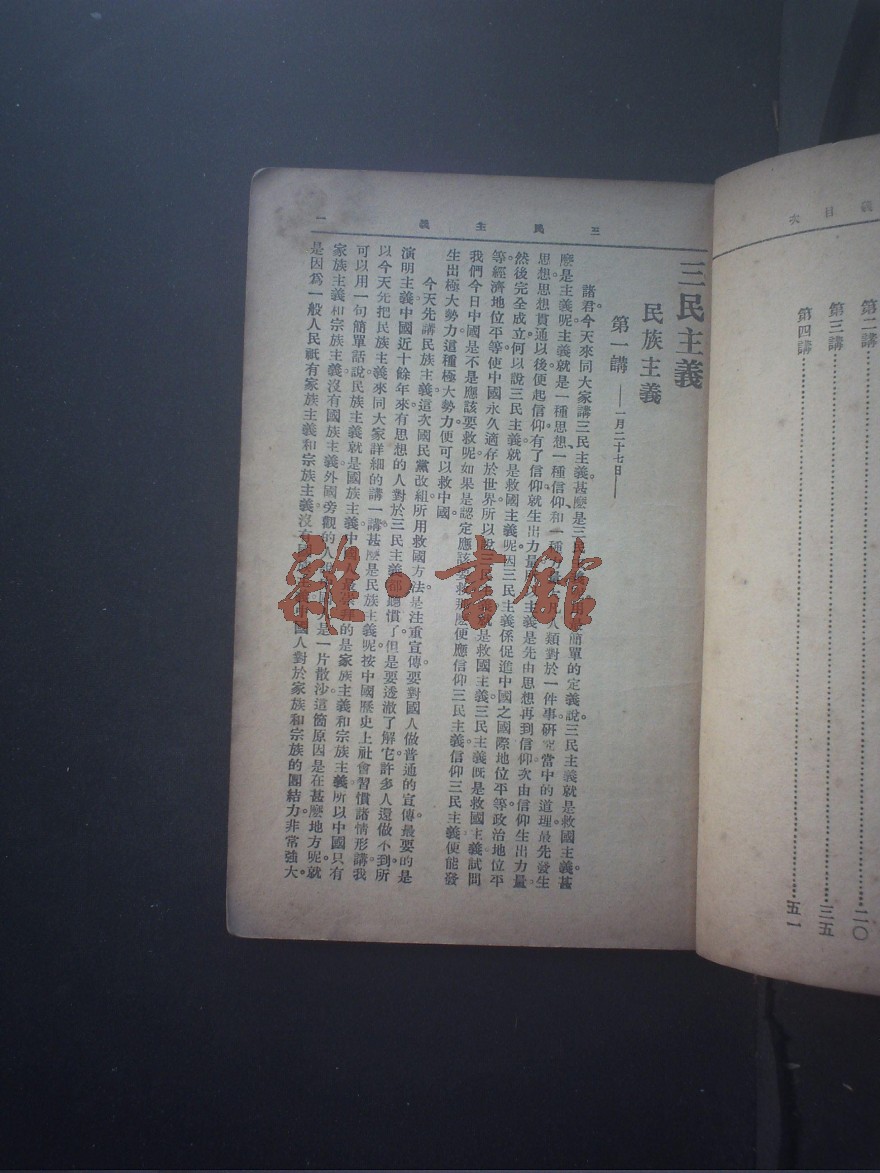 第二講⋯⋯二〇
第三講⋯⋯三五
第四講⋯⋯五一
三民主義
一
三民主義
民族主義
第一講 ——一月二十七日——
諸君。今天來同大家講三民主義。甚麽是三民主義
簡單的定義說。三民主義就是救國主義。甚
麽是主義呢。主義就是一種思想、一種信仰、和一種
人類對於一件事、研究當中的道理、最先發生
思想、思想貫通以後、便起信仰、有了信仰、就生出力量。
主義是先由思想再到信仰、次由信仰生出力量、
然後完全成立。何以說三民主義就是救國主義呢。因三民主義係促進中國之國際地位平等、政治地位平
等、經濟地位平等、使中國永久適存於世界。所以說三民
就是救國主義。三民主義旣是救國主義、試問
我們今日中國是不是應該要救呢。如果是認定應該要救、那麽便應信仰三民主義。信仰三民主義便能發
生出極大勢力。這種極大勢力、便可以救中國。
今天先講民族主義。這次國民黨改組、所用救國方法、是注重宣傳、要對國人做普通的宣傳、最要的是
演明主義。中國近十餘年來、有思想的人對於三民主義都聽慣了、但是要透澈了解它、許多人還做不到。所
以今天先把民族主義來同大家詳細的講一講。甚麽是民族主義呢。按中國歷史上社會習慣諸情形講、我
可以用一句簡單話說、民族主義就是國族主義。中國人最
的是家族主義和宗族主義、所以中國只有
家族主義和宗族主義、沒有國族主義。外國旁觀的人說
是一片散沙、這箇原因是在甚麽地方呢。就
是因爲一般人民祇有家族主義和宗族主義、沒有國
中國人對於家族和宗族的團結力、非常強大。
雜·書館